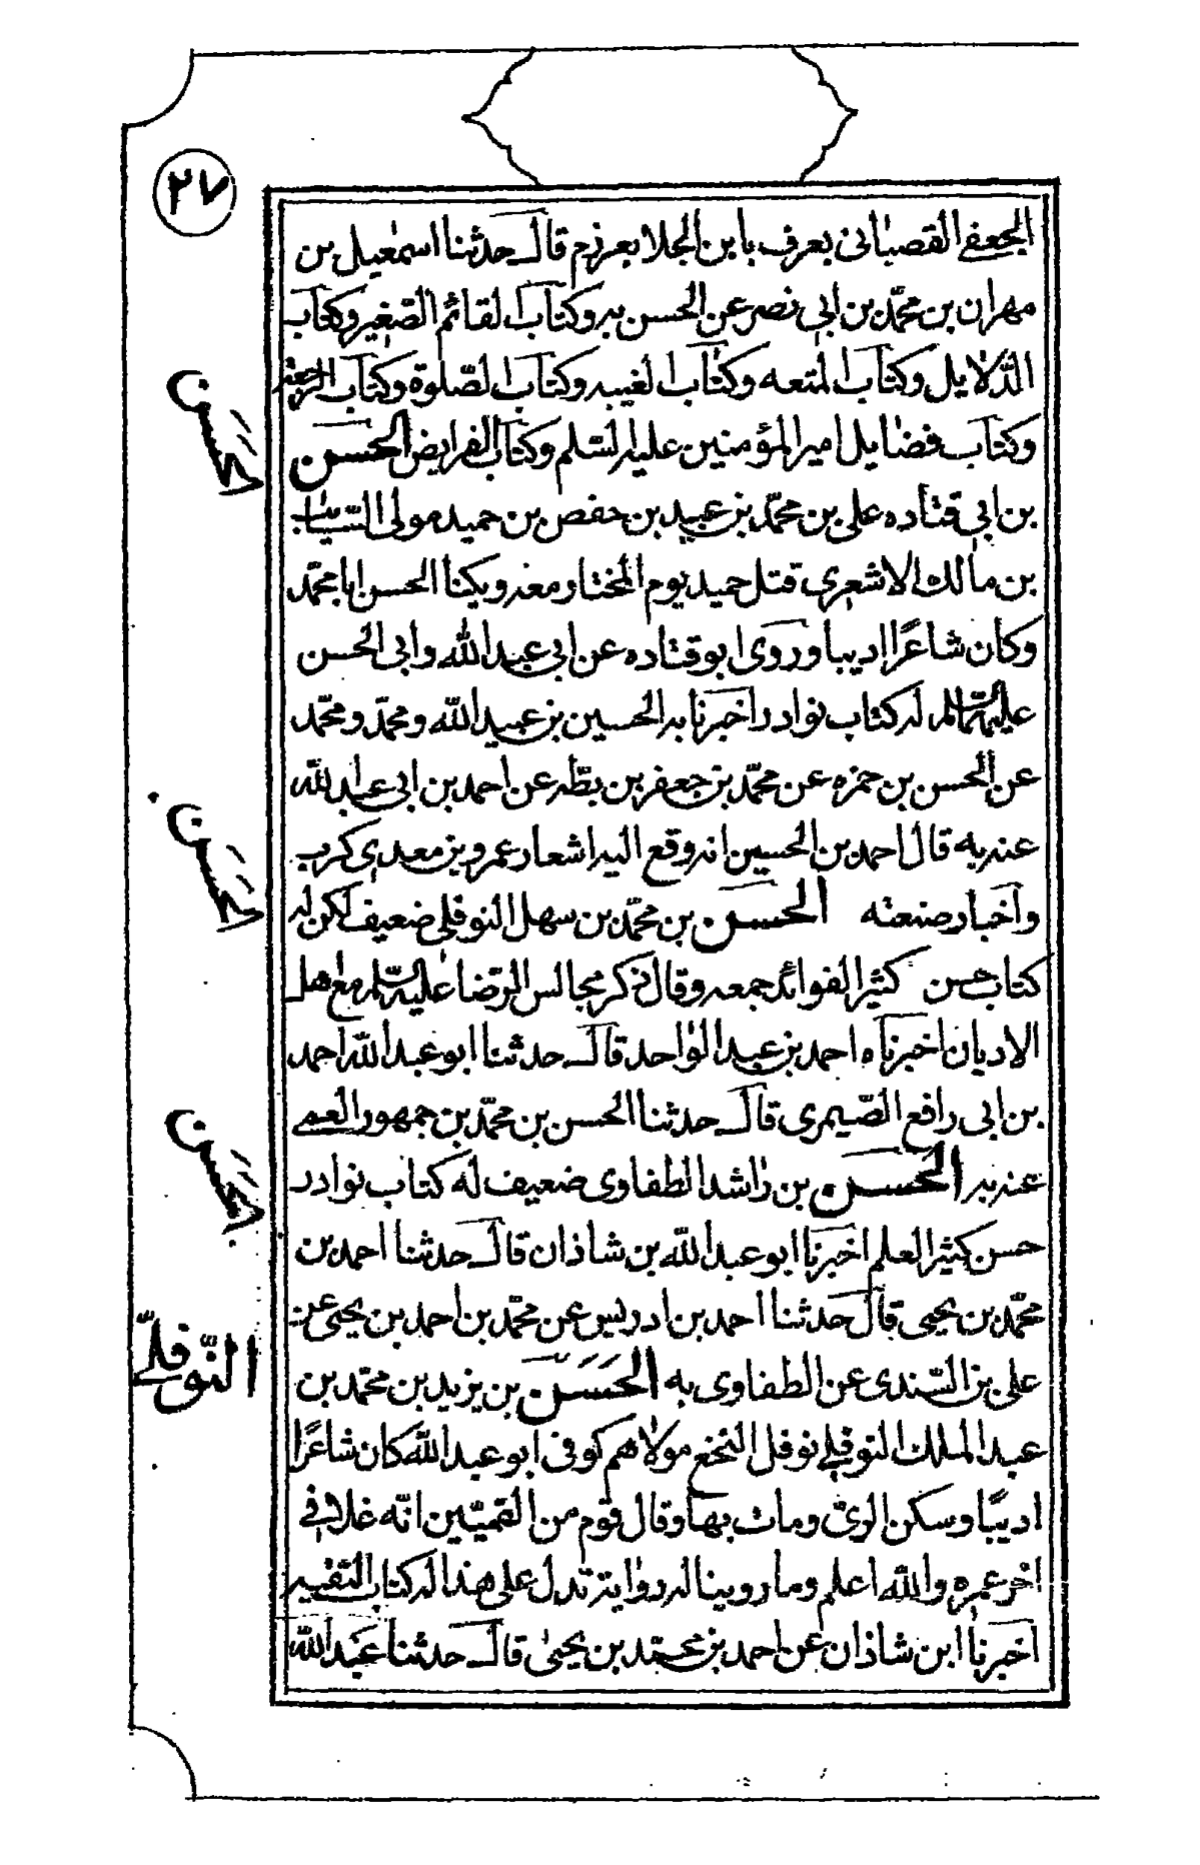 ٢٧
الجعفى القصبانى يعرف بابن الجلا بعرزم قال حدثنا اسمعيل بن
مهران بن محمّد بن ابي نصر عن الحسن به وكتاب القائم الصّغير وكتاب
الدّلايل وكتاب المتعه وكتاب الغيبه وكتاب الصّلوة وكتاب الرجعة
وكتاب فضايل امير المؤمنين عليه السّلم وكتاب الفرايض الحسن
بن ابي قتاده على بن محمّد بن عبيد بن حفص بن حميد مولى السّايب
بن مالك الاشعرى قتل حميد يوم المختار معه ويكنا الحسن ابا محمّد
وكان شاعرًا اديبا وروى ابو قتاده عن ابي عبد الله وابى الحسن
عليهما السّلم له كتاب نوادر اخبرنا به الحسين بن عبيد الله ومحمّد ومحمّد
عن الحسن بن حمزه عن محمّد بن جعفر بن بطّه عن احمد بن ابى عبد الله
عنه به قال احمد بن الحسين انه وقع اليه اشعار عمرو بن معدي كرب
واخبار صنعته الحسن بن محمّد بن سهل النوفلى ضعيف لكن له
كتاب حسن كثير الفوائد جمعه وقال ذكر مجالس الرّضا عليه السّلم مع اهل
الاديان اخبرناه احمد بن عبد الواحد قال حدثنا ابو عبد الله احمد
بن ابى رافع الصّيمرى قال حدثنا الحسن بن محمّد بن جمهور العمى
عنه به الحسن بن راشد الطفاوى ضعيف له كتاب نوادر
حسن كثير العلم اخبرنا ابو عبد الله بن شاذان قال حدثنا احمد بن
محمّد بن يحيى قال حدثنا احمد بن ادريس عن محمّد بن احمد بن يحيى عن
على بن السّندى عن الطفاوى به الحسن بن يزيد بن محمّد بن
عبد الملك النوفلى نوفل النخع مولاهم كوفى ابو عبد الله كان شاعرًا
اديبًا وسكن الرىّ ومات بها وقال قوم من القميّين انّه غلا في
اخر عمره والله اعلم وما روينا له رواية تدل على هذا له كتاب التقيه
اخبرنا ابن شاذان عن احمد بن محمّد بن يحيى قال حدثنا عبد الله
الحسن
الحسن
الحسن
النّوفلى